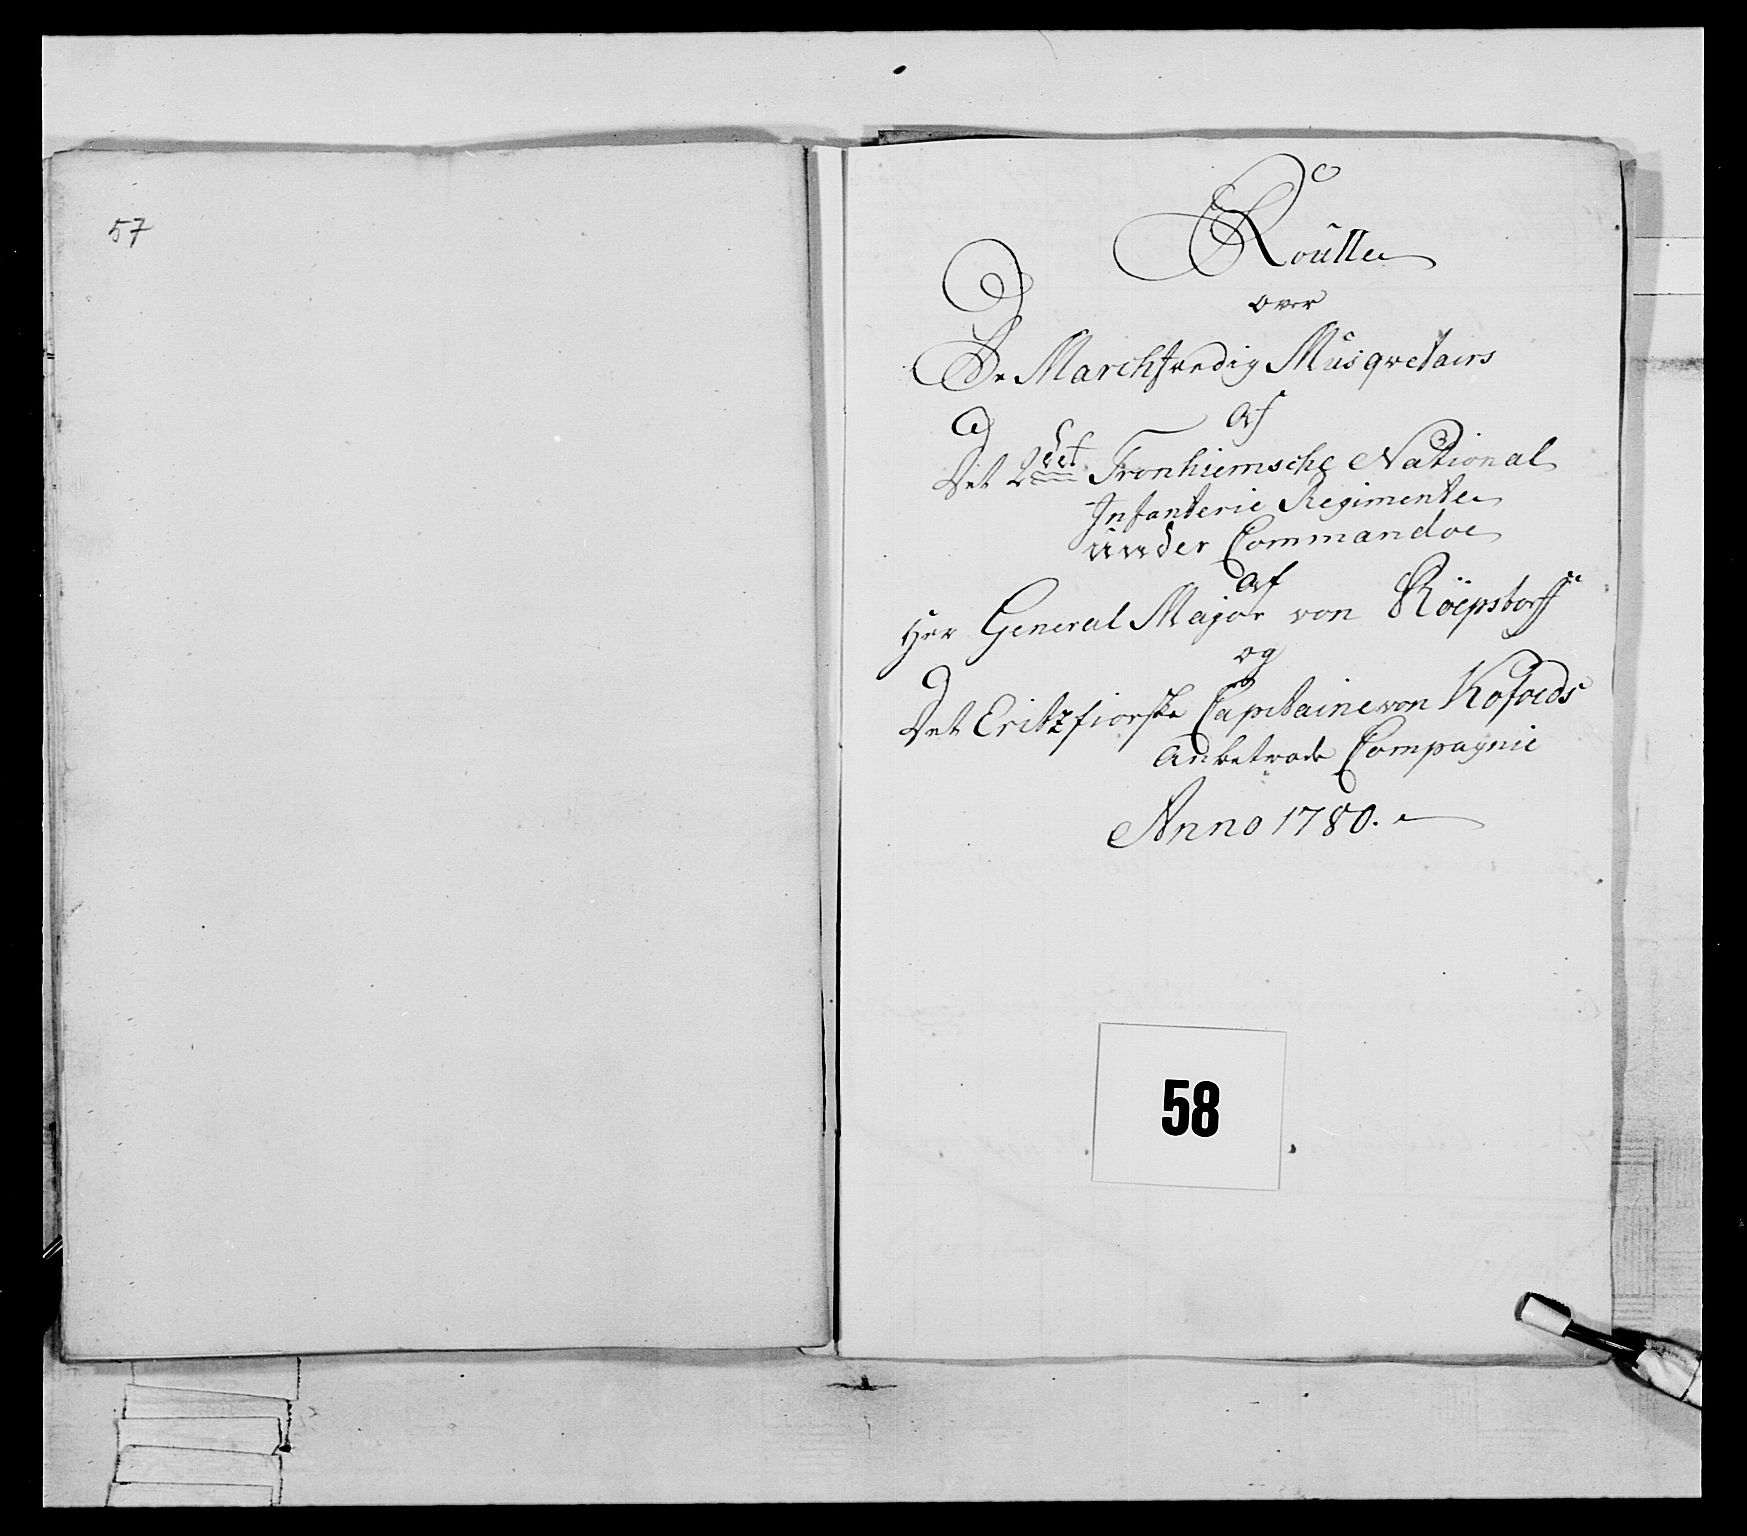 57
Roulle
over
De Marchfærdig Musqvetairs
af
Det 2det Tronhiemsche National
Infanterie Regimente
under Commandoe
af
Herr General Major von Röepstorff
og
Det Eritzfiorske Capitaine von Kofoeds
Anbetroede Compagnie
Anno 1780.
58